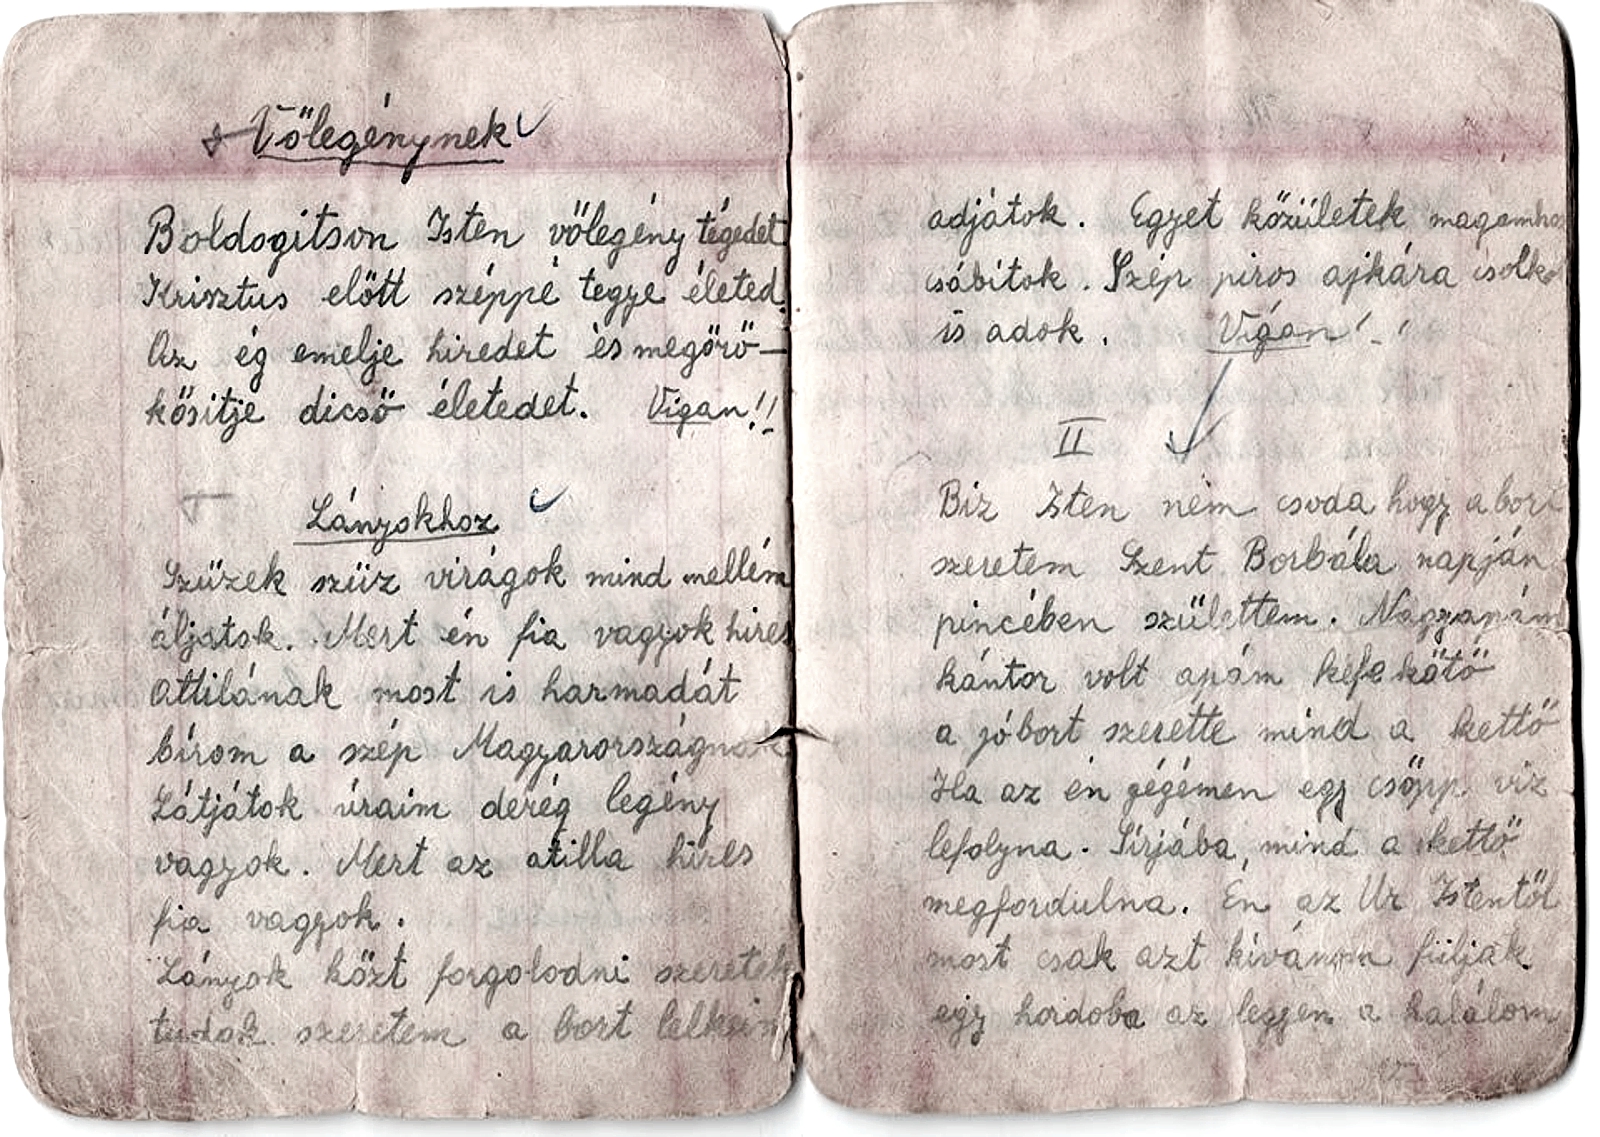 Vőlegénynek
Boldogitson Isten vőlegény tégedet
Krisztus előtt széppé tegye életed.
Az ég emelje hiredet és megörö-
kősitje dicső életedet. Vigan!!
Lányokhoz
Szűzek szűz virágok mind mellém
áljatok. Mert én fia vagyok hires
Attilának most is harmadát
bírom a szép Magyarországnak
Látjátok úraim derég legény
vagyok. Mert az atilla hires
fia vagyok.
Lányok közt forgolodni szeretek
tudok szeretem a bort lelkeim
adjátok. Egyet közületek magamhoz
csábitok. Szép piros ajkára csolkot
is adok. Vígan!
II
Biz Isten nem csoda hogy a bort
szeretem Szent Borbála napján
pincében születtem. Nagyapám
kántor volt apám kefe kötő
a jó bort szerette mind a kettő
Ha az én gégémen egy csöpp viz
lefolyna. Sírjába, mind a kettő
megfordulna. Én az Ur Istentől
most csak azt kívánom fúljak
egy hordoba az legyen a halálom